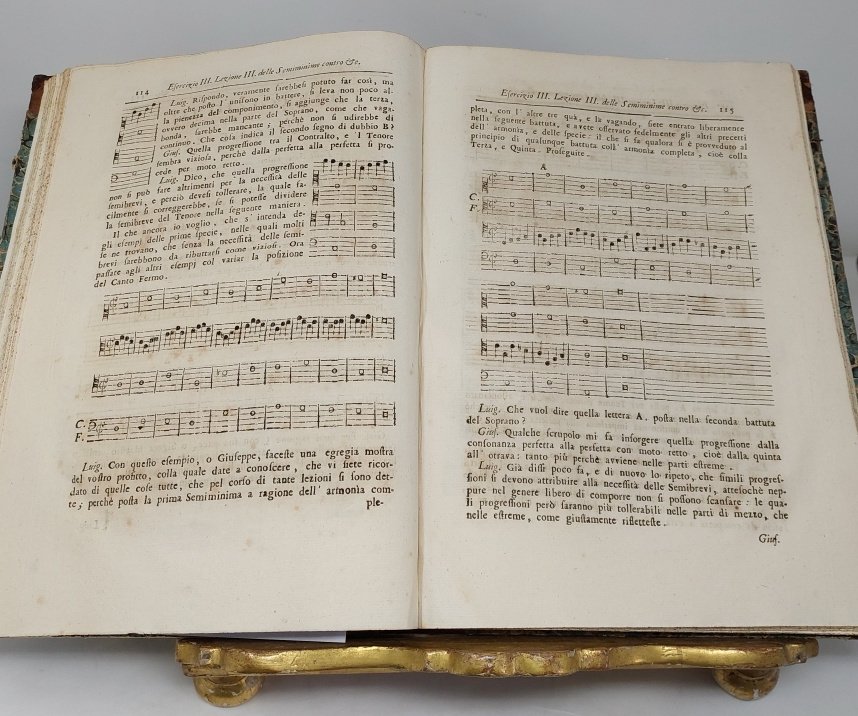 114
Esercizio III. Lezione III. delle Semiminime contro &c.
Luig. Rispondo, veramente sarebbesi potuto far così, ma
oltre che posto l'unisono in battere, si leva non poco al-
la pienezza del componimento, si aggiunge che la terza,
ovvero decima nella parte del Soprano, come che vaga-
bonda, sarebbe mancante; perchè non si udirebbe di
continuo. Che cosa indica il secondo segno di dubbio B?
Gius. Quella progressione tra il Contralto, e 'l Tenore
sembra viziosa, perchè dalla perfetta alla perfetta si pro-
cede per moto retto.
Luig. Dico, che quella progressione
non si può fare altrimenti per la necessità delle
semibrevi, e perciò devesi tollerare, la quale fa-
cilmente si correggerebbe, se si potesse dividere
la semibreve del Tenore nella seguente maniera.
Il che ancora io voglio, che s'intenda de-
gli esempj delle prime specie, nelle quali molti
se ne trovano, che senza la necessità delle semi-
brevi sarebbono da ributtarsi come viziosi. Ora
passate agli altri esempj col variar la posizione
del Canto Fermo.
C.
F.
Luig. Con questo esempio, o Giuseppe, faceste una egregia mostra
del vostro profitto, colla quale date a conoscere, che vi siete ricor-
dato di quelle cose tutte, che pel corso di tante lezioni si sono det-
te; perchè posta la prima Semiminima a ragione dell' armonìa com-
ple-
Esercizio III. Lezione III. delle Semiminime contro &c. 115
pleta, con l' altre tre quà, e là vagando, siete entrato liberamente
nella seguente battuta, e avete osservato fedelmente gli altri precetti
dell' armonia, e delle specie: il che si fa qualora si è proveduto al
principio di qualunque battuta coll' armonìa completa, cioè colla
Terza, e Quinta. Proseguite.
A
C.
F.
Luig. Che vuol dire quella lettera A. posta nella seconda battuta
del Soprano?
Gius. Qualche scrupolo mi fa insorgere quella progressione dalla
consonanza perfetta alla perfetta con moto retto, cioè dalla quinta
all' ottava: tanto più perchè avviene nelle parti estreme.
Luig. Già dissi poco fa, e di nuovo lo ripeto, che simili progres-
sioni si devono attribuire alla necessità delle Semibrevi, attesochè nep-
pure nel genere libero di comporre non si possono scansare: le qua-
li progressioni però saranno più tollerabili nelle parti di mezzo, che
nelle estreme, come giustamente rifletteste.
Gius.